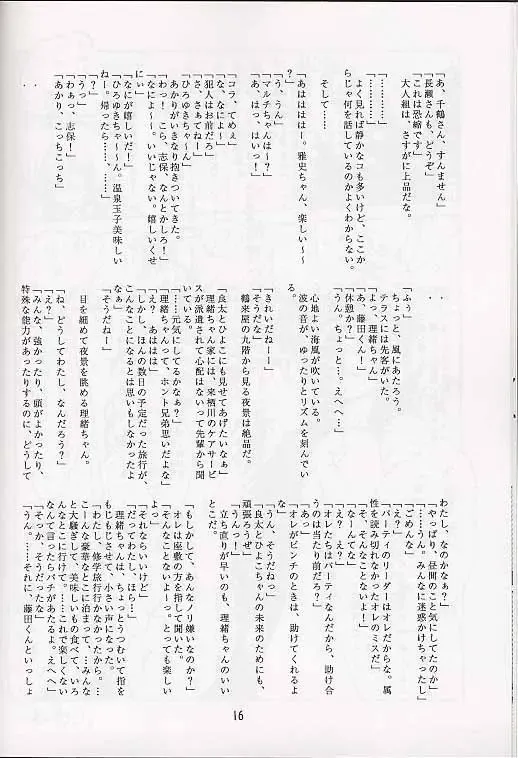 「あ、千鶴さん、すんません」
「長瀬さんも、どうぞ」
「これは恐縮です」
大人組は、さすがに上品だな。
「…………」
「…………」
よく見れば静かなコも多いけど、ここか
らじゃ何を話しているのかよくわからない。
そして……
「あははははー。雅史ちゃん、楽しい〜
？」
「う、うん」
「マルチちゃんは〜？」
「あ、はっ、はいっ！」
「コラ、てめぇ」
「な、なによ〜」
「犯人はお前だろ」
「さ、さぁてねー」
「ひろゆきちゃ〜ん」
あかりがいきなり抱きついてきた。
「わっ！ こら、志保、なんとかしろ！」
「なによ〜〜、いいじゃない。嬉しいくせ
にぃ」
「なにが嬉しいだ！」
「ひろゆきちゃ〜〜ん。温泉玉子美味しい
ねー。帰ったら……、……」
「？」
「うっ」
「わぁっ、志保！」
「あかり、こっちこっち」
．．
．．
「ふう」
ちょっと、風にあたろう。
テラスには先客がいた。
「よっ、理緒ちゃん」
「あ、藤田くん！」
「休憩か？」
「うん。ちょっと…。えへへ…」
心地よい海風が吹いている。
波の音が、ゆったりとリズムを刻んでい
る。
「きれいだねーー」
「そうだな」
鶴来屋の九階から見る夜景は絶品だ。
「良太とひよこにも見せてあげたいなぁ」
理緒ちゃん家には、来栖川のケアサービ
スが派遣されて心配はないって先輩から聞
いている。
「……元気にしてるかなぁ？」
「理緒ちゃんって、ホント兄弟思いだよな」
「え？ あははは」
「しかし、ほんの数日の予定だった旅行が、
こんなことになるとは思いもしなかったよ
なぁ」
「そうだねー」
目を細めて夜景を眺める理緒ちゃん。
「ね、どうしてわたし、なんだろう？」
「え？」
「みんな、強かったり、頭がよかったり、
特殊な能力があったりするのに、どうして
わたし、なのかなぁ？」
「やっぱり、昼間のこと気にしてたのか」
「……うん。みんなに迷惑かけちゃったし」
「ごめんな」
「え？」
「パーティのリーダーはオレだからな。属
性を読み切れなかったオレのミスだ」
「そ、そんなことないよ！」
「なーんてな」
「え？ え？」
「オレたちはパーティなんだから、助け合
うのは当たり前だろ？」
「あっ」
「オレがピンチのときは、助けてくれるよ
な」
「うん、そうだねっ」
「良太とひよこちゃんの未来のためにも、
頑張ろうぜ」
「うんっ！」
立ち直りが早いのも、理緒ちゃんのいい
とこだ。
「もしかして、あんなノリ嫌いなのか？」
オレは座敷の方を指して聞いた。
「そんなことないよーっ。とっても楽しい
よっ」
「それならいいけど」
「だってわたし、ほら…」
理緒ちゃんは、ちょっとうつむいて指を
もじもじさせて、小さい声になった。
「わたし、修学旅行行かなかったから。…
こーんな豪華なとこに泊まって、…みんな
と大騒ぎして、美味しいもの食べて、いろ
んなとこに行けて。……これで楽しくない
なんて言ったらバチがあたるよ。えへへ」
「そっか、そうだったな」
「うん。……それに、藤田くんといっしょ
16